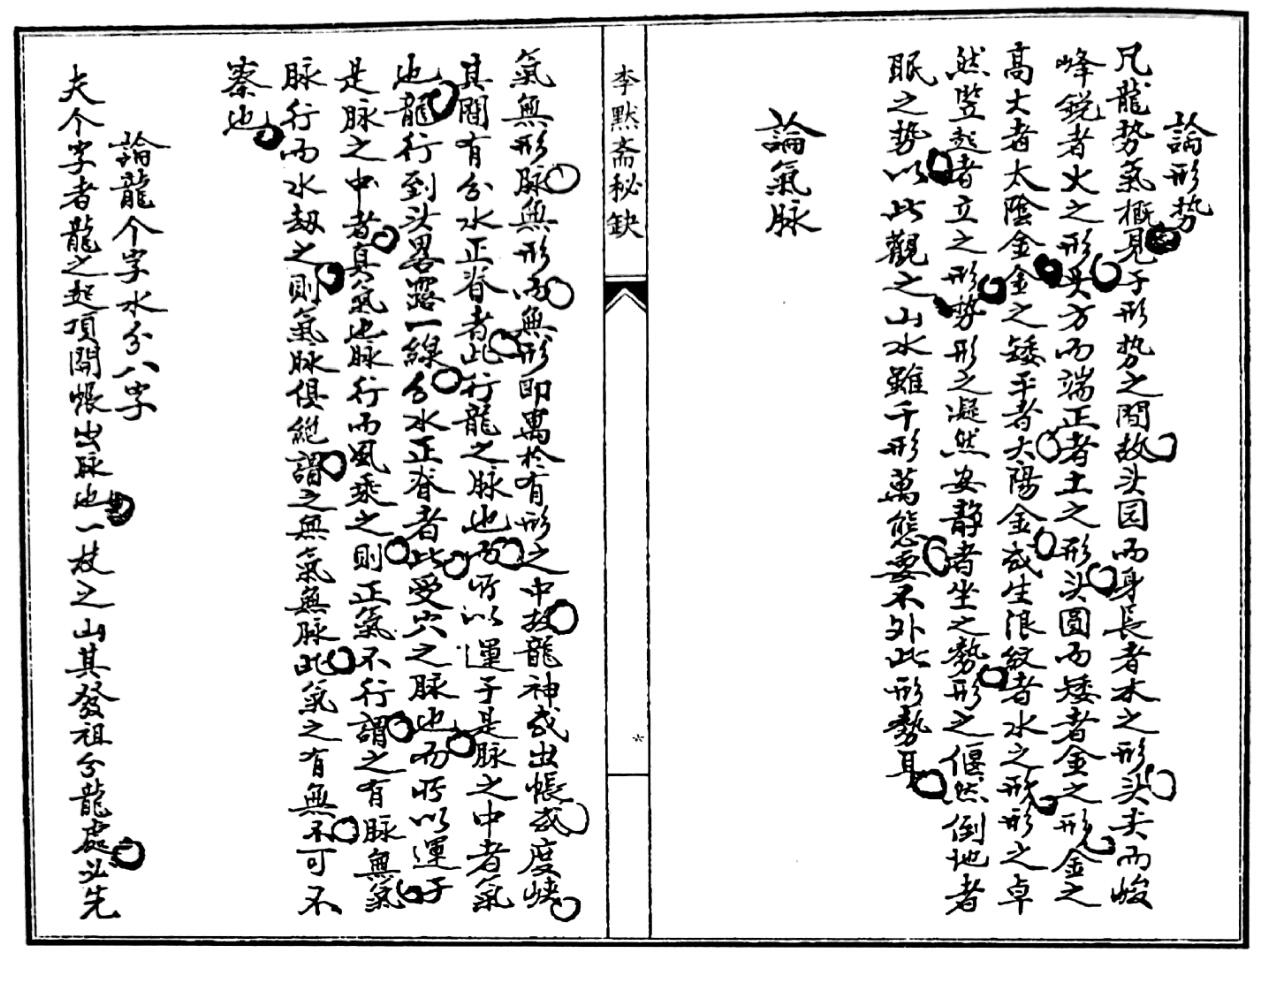 論形势
凡龍势氣概見于形势之間故头园而身長者木之形头尖而峻
峰鋭者火之形头方而端正者土之形头圓而矮者金之形金之
高大者太陰金金之矮平者太陽金或生浪紋者水之形形之卓
然竖起者立之形势形之凝然安静者坐之勢形之偃然倒地者
眠之势以此觀之山水雖千形萬態要不外此形勢耳
論氣脉
李黙斋秘缺
*
氣無形脉無形而無形即寓於有形之中故龍神或出帳或度峡
其間有分水正脊者此行龍之脉也而所以運于是脉之中者氣
也龍行到头畧露一線分水正脊者此受穴之脉也而所以運于
是脉之中者真氣也脉行而風乘之則正氣不行謂之有脉無氣
脉行而水刼之則氣脉俱絶謂之無氣無脉此氣之有無不可不
察也
論龍个字水分八字
夫个字者龍之起頂開帳出脉也一枝之山其發祖分龍處必先